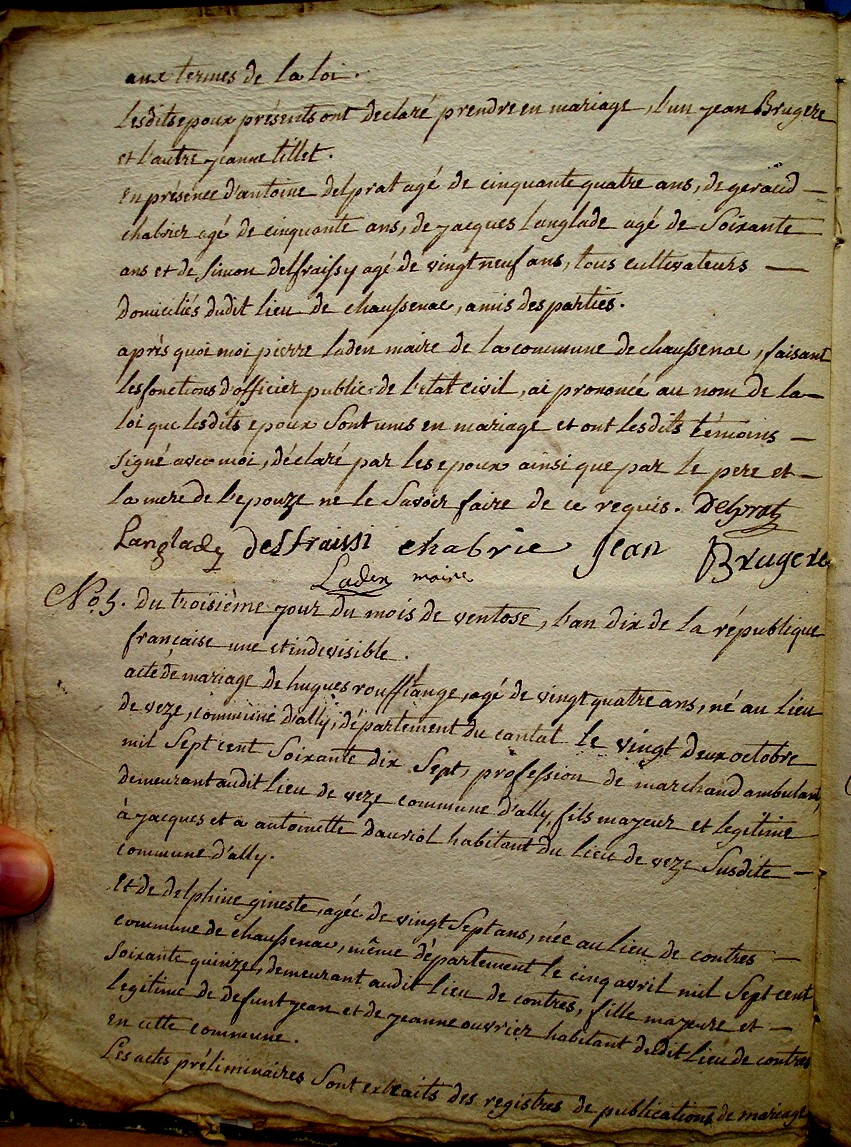 aux termes de la loi.
Lesdits epoux présents ont declaré prendre en mariage, l'un jean Brugere
et l'autre jeanne tillet.
En présence d'antoine delprat agé de cinquante quatre ans, de geraud
chabrier agé de cinquante ans, de jacques langlade agé de Soixante
ans et de Simon delfraissy agé de vingt neuf ans, tous cultivateurs
domiciliés dudit lieu de chaussenac, amis des parties.
après quoi moi pierre laden maire de la commune de chaussenac, faisant
les fonctions d'officier public de l'etat civil, ai prononcé au nom de la
loi que lesdits epoux Sont unis en mariage et ont lesdits témoins
Signé avec moi, déclaré par les epoux ainsi que par le pere et
la mere de l'epouze ne le Savoir faire de ce requis. Delprat
Langlade delfraissi chabrie jean Brugere
Laden maire
No. 5. du troisième jour du mois de ventose, l'an dix de la république
française une et indevisible.
acte de mariage de hugues roufflange, agé de vingt quatre ans, né au lieu
de veze, commune d'ally, département du cantal le vingt deux octobre
mil Sept cent Soixante dix Sept, profession de marchand ambulant,
demeurant audit lieu de veze commune d'ally, fils majeur et legitime
à jacques et à antoinette dauriol habitant du lieu de veze Susdite
commune d'ally.
et de delphine gineste, agée de vingt Sept ans, née au lieu de contres
commune de chaussenac, même département le cinq avril mil Sept cent
Soixante quinze, demeurant audit lieu de contres, fille majeure et
legitime de defunt jean et de jeanne ouvrier habitant dudit lieu de contres
en cette commune.
Les actes préliminaires Sont extraits des registres de publications de mariage